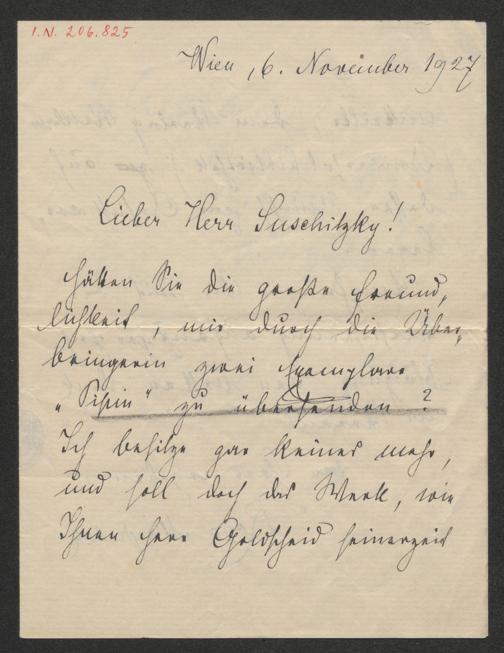 I.N. 206.825
Wien, 6. November 1927
Lieber Herr Suschitzky!
Hätten Sie die große Freund-
lichkeit, mir durch die Über-
bringerin zwei Exemplare
„ " zu übersenden?
Ich besitze gar keines mehr,
und soll doch das Werk, wie
Ihnen Herr Goldscheid seinerzeit